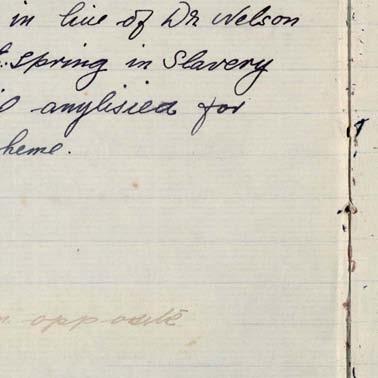 in liue of Dr Nelson
Spring in Slavery
anylisied for
heme.
opposite